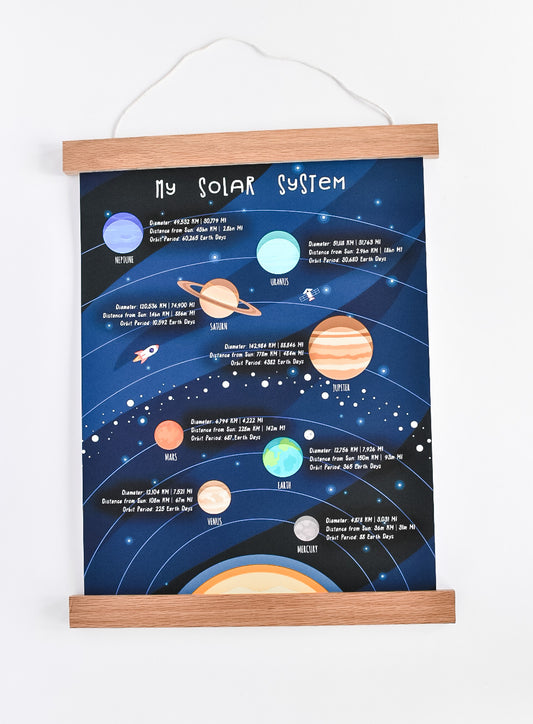 MY SOLAR SYSTEM
Diameter: 49,532 KM | 30,779 MI
Distance from Sun: 4.5bn KM | 2.8bn MI
Orbit Period: 60,265 Earth Days
NEPTUNE
Diameter: 51,118 KM | 31,763 MI
Distance from Sun: 2.9bn KM | 1.8bn MI
Orbit Period: 30,680 Earth Days
URANUS
Diameter: 120,536 KM | 74,900 MI
Distance from Sun: 1.4bn KM | 886m MI
Orbit Period: 10,592 Earth Days
SATURN
Diameter: 142,984 KM | 88,846 MI
Distance from Sun: 778m KM | 484m MI
Orbit Period: 4382 Earth Days
JUPITER
Diameter: 6,794 KM | 4,222 MI
Distance from Sun: 228m KM | 142m MI
Orbit Period: 687 Earth Days
MARS
Diameter: 12,756 KM | 7,926 MI
Distance from Sun: 150m KM | 93m MI
Orbit Period: 365 Earth Days
EARTH
Diameter: 12,104 KM | 7,521 MI
Distance from Sun: 108m KM | 67m MI
Orbit Period: 225 Earth Days
VENUS
Diameter: 4,878 KM | 3,031 MI
Distance from Sun: 56m KM | 31m MI
Orbit Period: 88 Earth Days
MERCURY